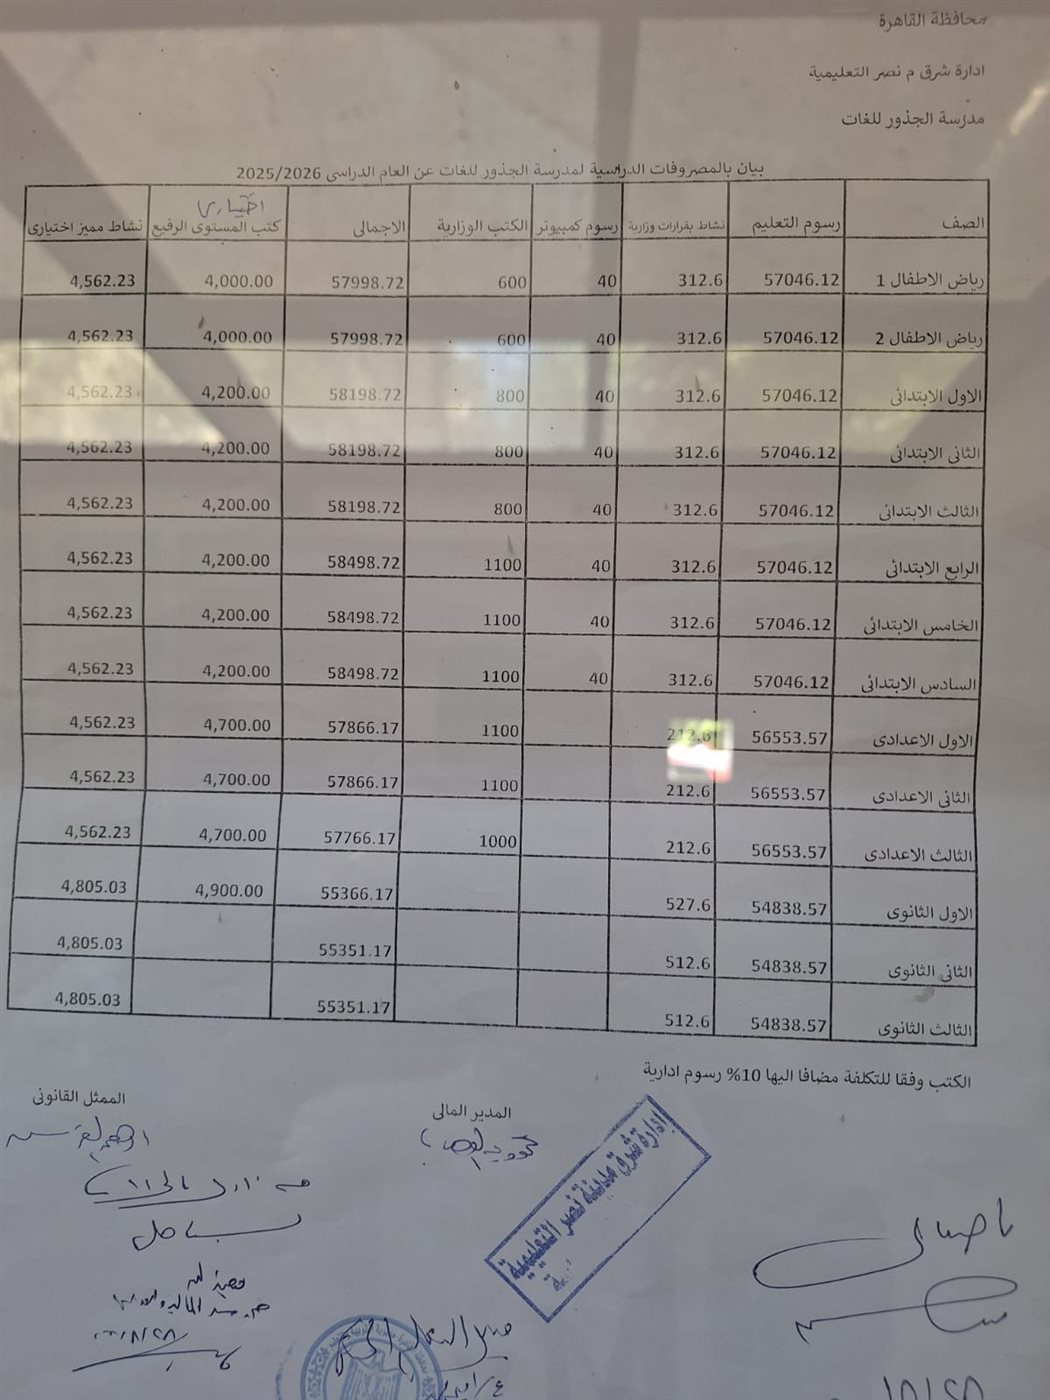 محافظة القاهرة
ادارة شرق م نصر التعليمية
مدرسة الجذور للغات
بيان بالمصروفات الدراسية لمدرسة الجذور للغات عن العام الدراسى 2025/2026
الصف رسوم التعليم نشاط بقرارات وزارية رسوم كمبيوتر الكتب الوزارية الاجمالى كتب المستوى الرفيع اختيارى نشاط مميز اختيارى
رياض الاطفال 1 57046.12 312.6 40 600 57998.72 4,000.00 4,562.23
رياض الاطفال 2 57046.12 312.6 40 600 57998.72 4,000.00 4,562.23
الاول الابتدائى 57046.12 312.6 40 800 58198.72 4,200.00 4,562.23
الثانى الابتدائى 57046.12 312.6 40 800 58198.72 4,200.00 4,562.23
الثالث الابتدائى 57046.12 312.6 40 800 58198.72 4,200.00 4,562.23
الرابع الابتدائى 57046.12 312.6 40 1100 58498.72 4,200.00 4,562.23
الخامس الابتدائى 57046.12 312.6 40 1100 58498.72 4,200.00 4,562.23
السادس الابتدائى 57046.12 312.6 40 1100 58498.72 4,200.00 4,562.23
الاول الاعدادى 56553.57 212.6 1100 57866.17 4,700.00 4,562.23
الثانى الاعدادى 56553.57 212.6 1100 57866.17 4,700.00 4,562.23
الثالث الاعدادى 56553.57 212.6 1000 57766.17 4,700.00 4,562.23
الاول الثانوى 54838.57 527.6 55366.17 4,900.00 4,805.03
الثانى الثانوى 54838.57 512.6 55351.17 4,805.03
الثالث الثانوى 54838.57 512.6 55351.17 4,805.03
الكتب وفقا للتكلفة مضافا اليها 10% رسوم ادارية
المدير المالى
الممثل القانونى
ادارة شرق مدينة نصر التعليمية